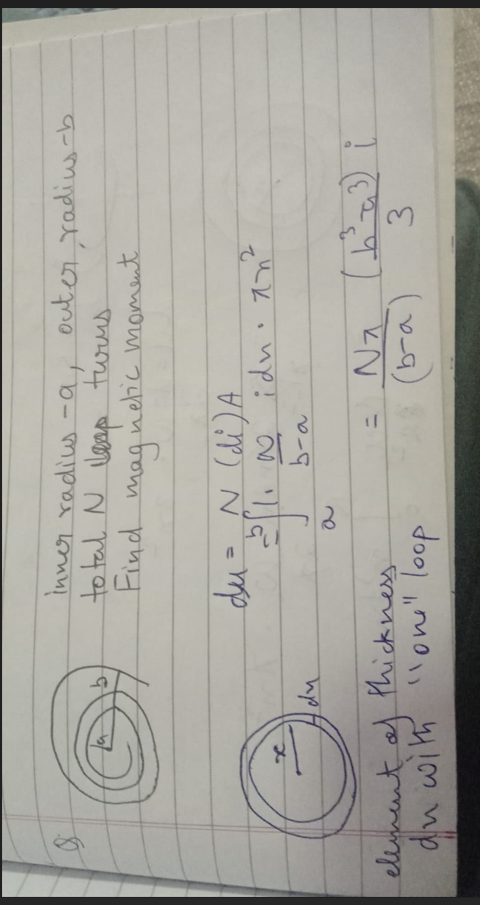 Q inner radius - a, outer radius - b
total N turns
Find magnetic moment
a b
dM = N (di) A
= ∫ₐᵇ 1. N/(b-a) idx · πx²
x dx
= Nπ/(b-a) (b³-a³)/3 i
element of thickness
dx with "one" loop